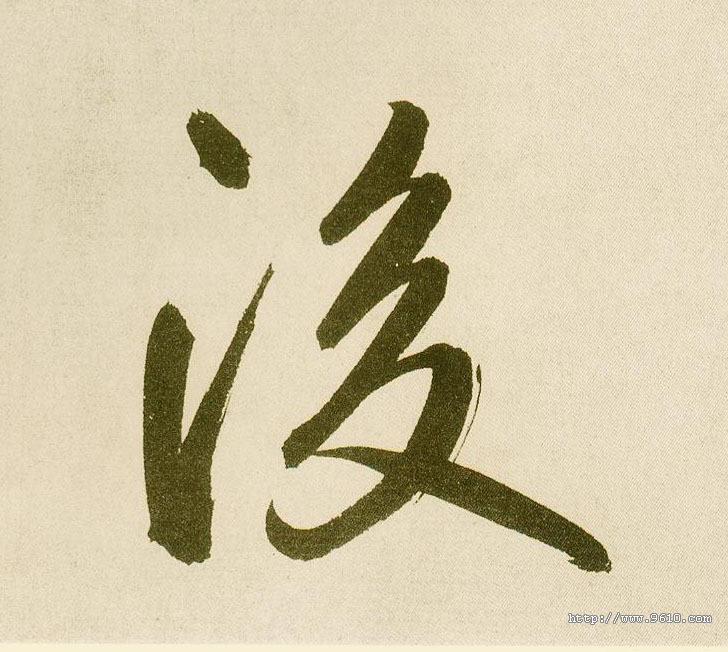 後
http://www.9610.com